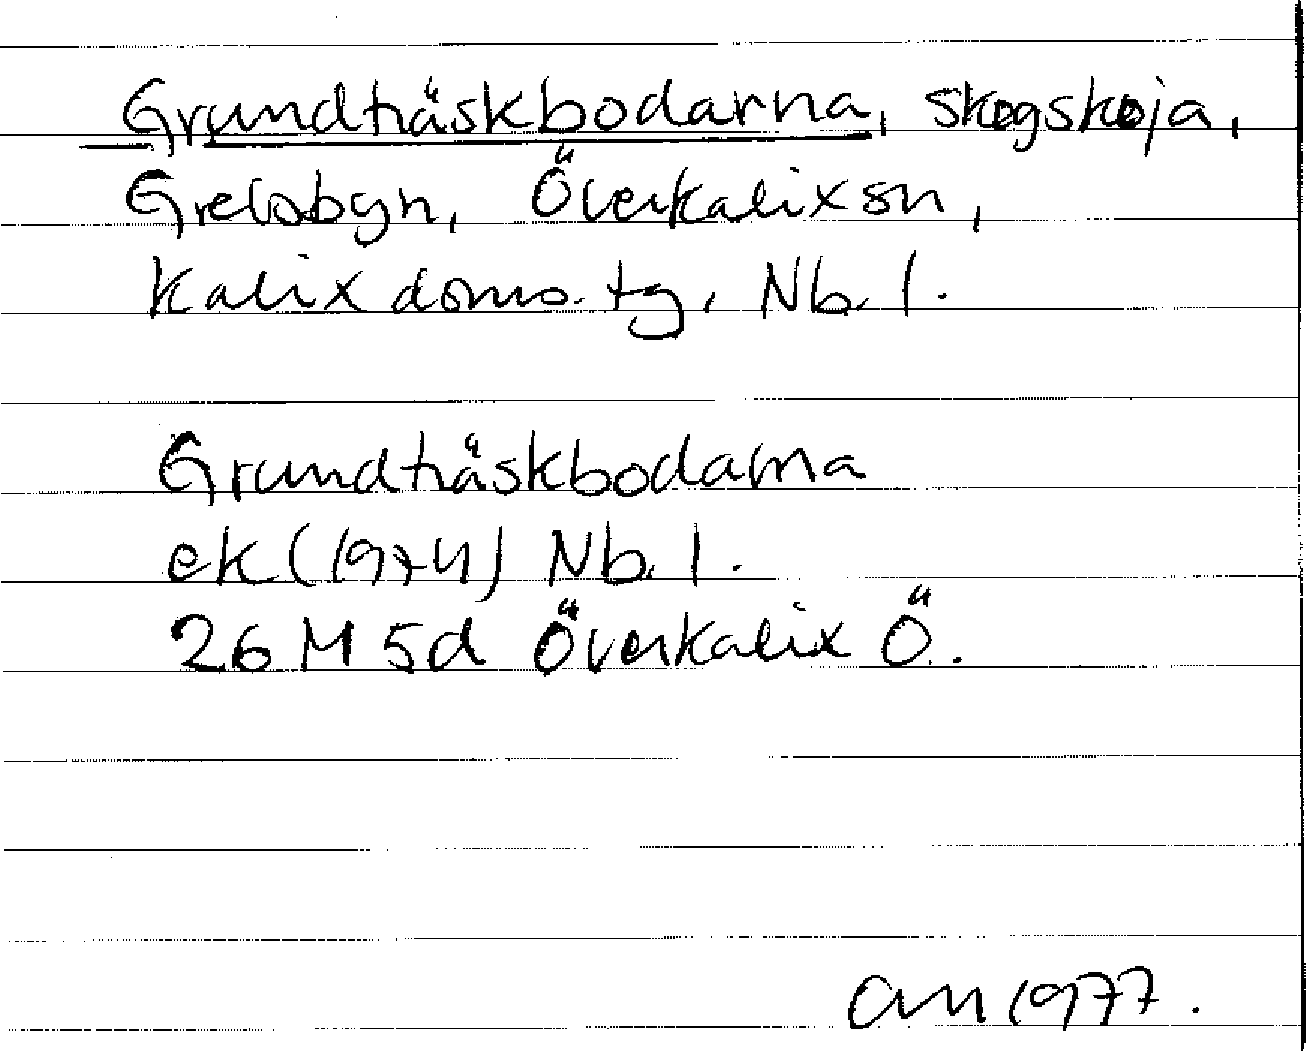 Grundträskbodarna, skogskoja,
Grelsbyn, Överkalix sn,
Kalix doms. tg, Nb. l.
Grundträskbodarna
ek (1974) Nb. l.
26 M 5d Överkalix Ö.
an 1977.